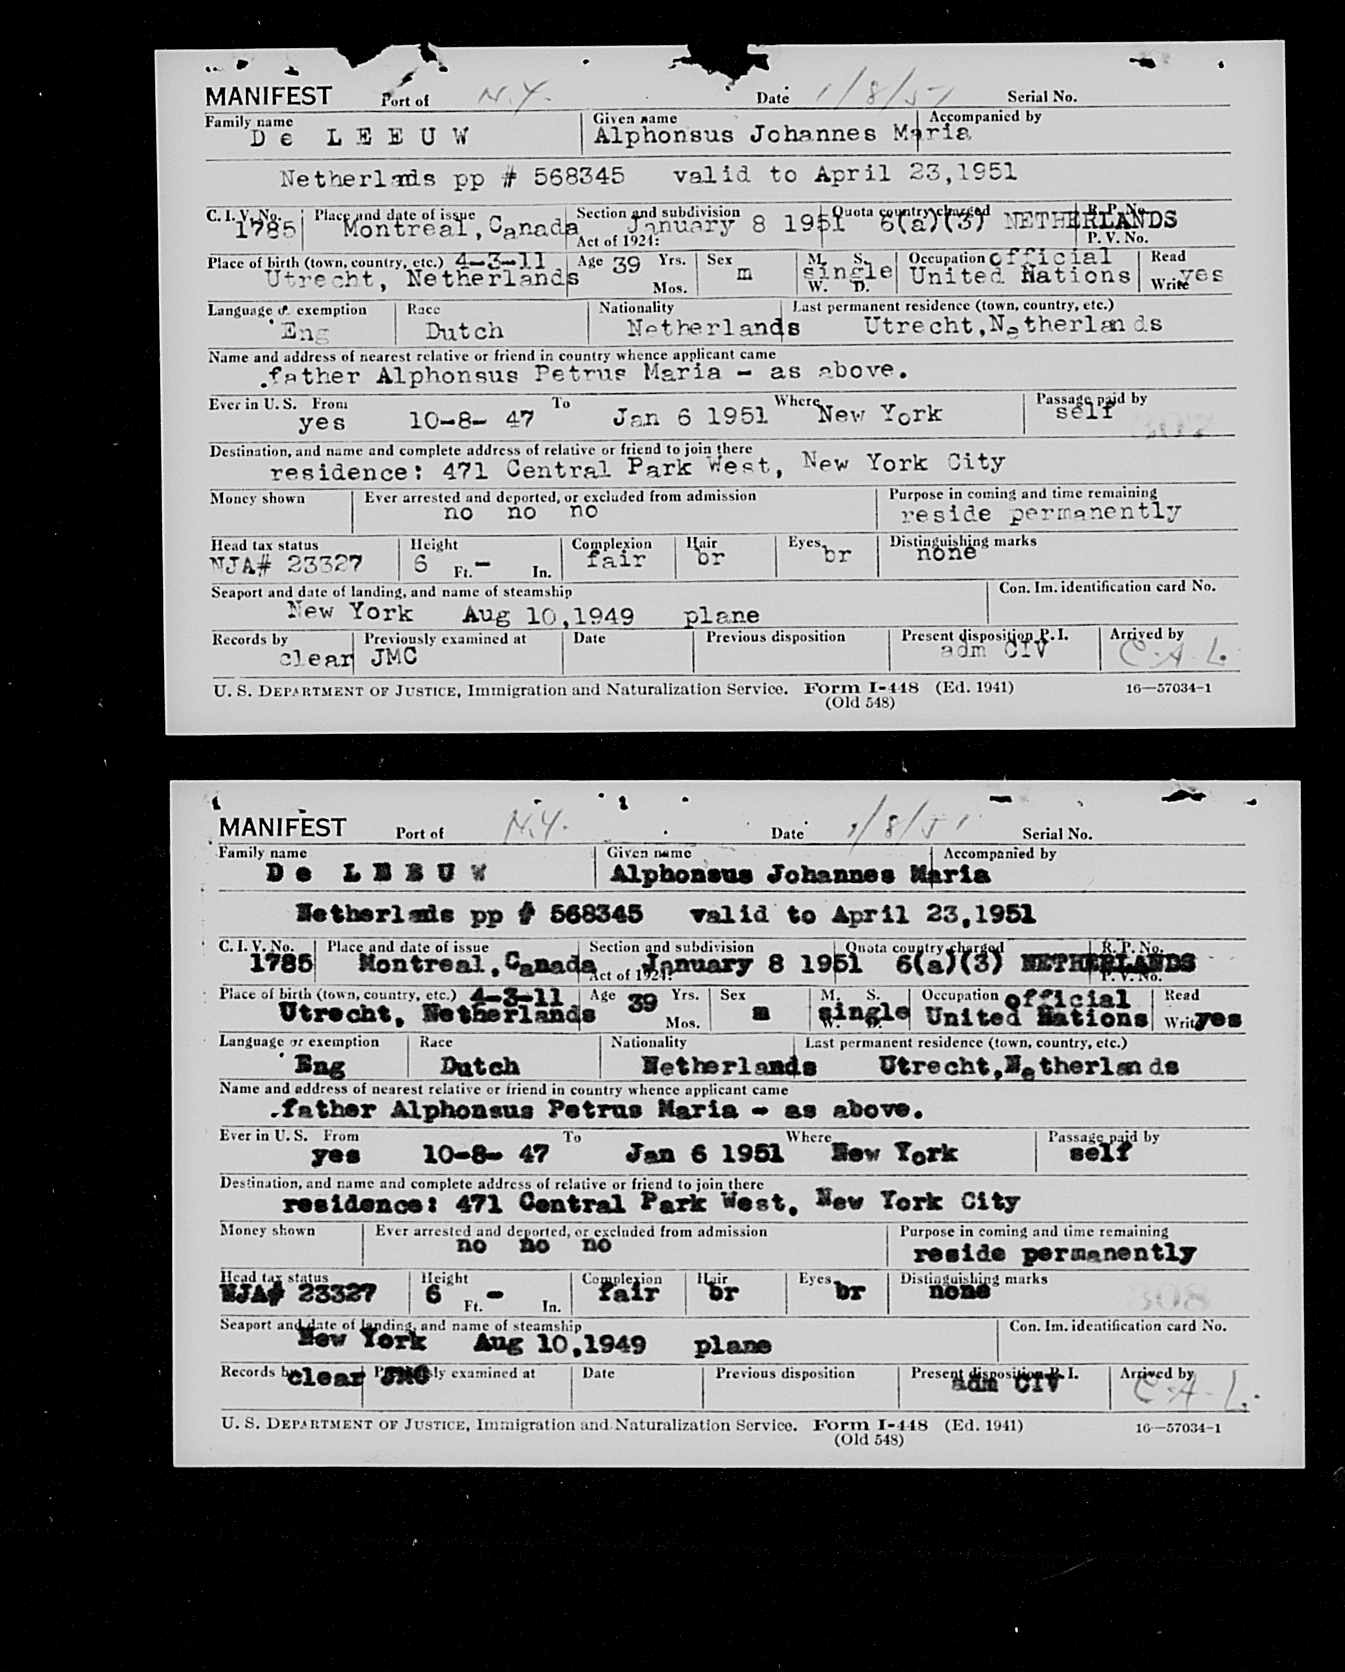 MANIFEST Port of N.Y. Date 1/8/51 Serial No.
Family name Given name Accompanied by
De LEEUW Alphonsus Johannes Maria
Netherlands pp # 568345 valid to April 23,1951
C. I. V. No. Place and date of issue Section and subdivision Quota country charged R. P. No.
1785 Montreal, Canada January 8 1951 6(a)(3) NETHERLANDS
Act of 1924: P. V. No.
Place of birth (town, country, etc.) 4-3-11 Age 39 Yrs. Sex M. S. Occupation official Read
Utrecht, Netherlands Mos. m single W. D. United Nations Write yes
Language or exemption Race Nationality Last permanent residence (town, country, etc.)
Eng Dutch Netherlands Utrecht, Netherlands
Name and address of nearest relative or friend in country whence applicant came
.father Alphonsus Petrus Maria - as above.
Ever in U. S. From To Where Passage paid by
yes 10-8- 47 Jan 6 1951 New York self
Destination, and name and complete address of relative or friend to join there
residence: 471 Central Park West, New York City
Money shown Ever arrested and deported, or excluded from admission Purpose in coming and time remaining
no no no reside permanently
Head tax status Height Complexion Hair Eyes Distinguishing marks
NJA# 23327 6 Ft. - In. fair br br none
Seaport and date of landing, and name of steamship Con. Im. identification card No.
New York Aug 10,1949 plane
Records by Previously examined at Date Previous disposition Present disposition P. I. Arrived by
clear JMC adm CIV C.A.L.
U. S. DEPARTMENT OF JUSTICE, Immigration and Naturalization Service. Form I-448 (Ed. 1941) 16—57034-1
(Old 548)
MANIFEST Port of N.Y. Date 1/8/51 Serial No.
Family name Given name Accompanied by
De LEEUW Alphonsus Johannes Maria
Netherlands pp # 568345 valid to April 23,1951
C. I. V. No. Place and date of issue Section and subdivision Quota country charged R. P. No.
1785 Montreal, Canada January 8 1951 6(a)(3) NETHERLANDS
Act of 1924: P. V. No.
Place of birth (town, country, etc.) 4-3-11 Age 39 Yrs. Sex M. S. Occupation official Read
Utrecht, Netherlands Mos. m single W. D. United Nations Write yes
Language or exemption Race Nationality Last permanent residence (town, country, etc.)
Eng Dutch Netherlands Utrecht, Netherlands
Name and address of nearest relative or friend in country whence applicant came
.father Alphonsus Petrus Maria - as above.
Ever in U. S. From To Where Passage paid by
yes 10-8- 47 Jan 6 1951 New York self
Destination, and name and complete address of relative or friend to join there
residence: 471 Central Park West, New York City
Money shown Ever arrested and deported, or excluded from admission Purpose in coming and time remaining
no no no reside permanently
Head tax status Height Complexion Hair Eyes Distinguishing marks
NJA# 23327 6 Ft. - In. fair br br none
Seaport and date of landing, and name of steamship Con. Im. identification card No.
New York Aug 10,1949 plane
Records by Previously examined at Date Previous disposition Present disposition P. I. Arrived by
clear JMC adm CIV C.A.L.
U. S. DEPARTMENT OF JUSTICE, Immigration and Naturalization Service. Form I-448 (Ed. 1941) 16—57034-1
(Old 548)